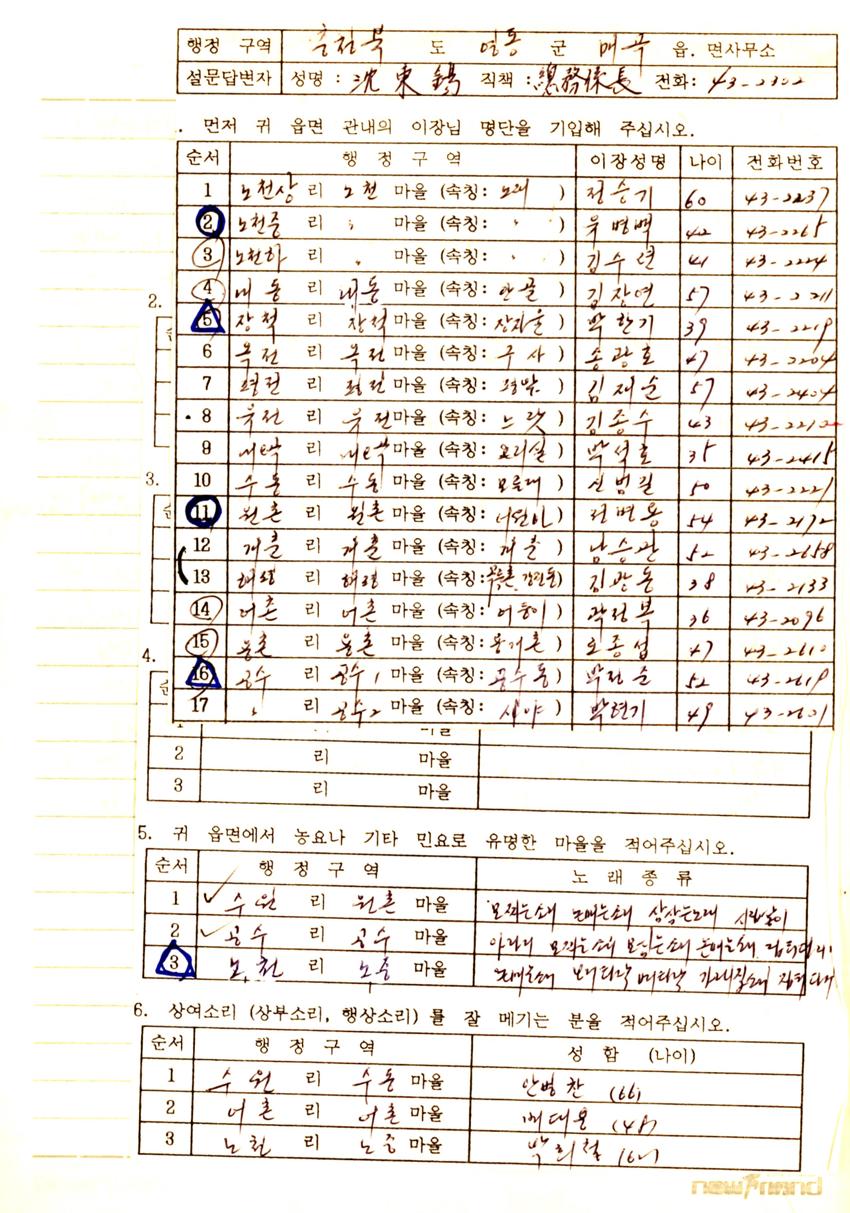 행정 구역 충청북 도 영동 군 매곡 읍.면사무소
설문답변자 성명 : 沈東錫 직책 : 總務係長 전화: 43-2302
. 먼저 귀 읍면 관내의 이장님 명단을 기입해 주십시오.
순서 행 정 구 역 이장성명 나이 전화번호
1 노천상 리 노천 마을 (속칭: 노래 ) 전승기 60 43-2237
2 노천중 리 〃 마을 (속칭: 〃 ) 42 43-2265
3 노천하 리 〃 마을 (속칭: 〃 ) 김수연 41 43-2224
4 내동 리 내동 마을 (속칭: 안골 ) 김장연 57 43-2211
5 장척 리 장척 마을 (속칭: ) 박한기 39 43-2219
6 옥전 리 옥전 마을 (속칭: 구사 ) 송광호 47 43-2204
7 평전 리 평전 마을 (속칭: ) 김재순 57 43-2404
8 유전 리 유전 마을 (속칭: 느랏 ) 김종수 43 43-2212
9 리 마을 (속칭: ) 박석호 35 43-2415
10 수동 리 수동 마을 (속칭: 모롤래 ) 신범길 50 43-2221
11 원촌 리 원촌 마을 (속칭: ) 전병용 54 43-2172
12 개춘 리 개춘 마을 (속칭: 개춘 ) 남승관 52 43-2658
13 리 마을 (속칭: ) 김광돈 38 43-2133
14 어촌 리 어촌 마을 (속칭: 어둥이 ) 곽정부 36 43-2096
15 용촌 리 용촌 마을 (속칭: ) 오종섭 47 43-2610
16 공수 리 공수 1 마을 (속칭: 공수동 ) 박진순 52 43-2619
17 〃 리 공수 2 마을 (속칭: ) 박현기 49 43-2601
2.
3.
4.
2 리 마을
3 리 마을
5. 귀 읍면에서 농요나 기타 민요로 유명한 마을을 적어주십시오.
순서 행 정 구 역 노 래 종 류
1 수원 리 원촌 마을 모찌는소리 논매는소리
2 공수 리 공수 마을 아라리 모찌는소리 모심는소리 논매는소리
3 노천 리 노중 마을 논매는소리
6. 상여소리 (상부소리, 행상소리) 를 잘 메기는 분을 적어주십시오.
순서 행 정 구 역 성 함 (나이)
1 수원 리 수동 마을 안병찬 (66)
2 어촌 리 어촌 마을 배대용 (48)
3 노천 리 노중 마을 박희철